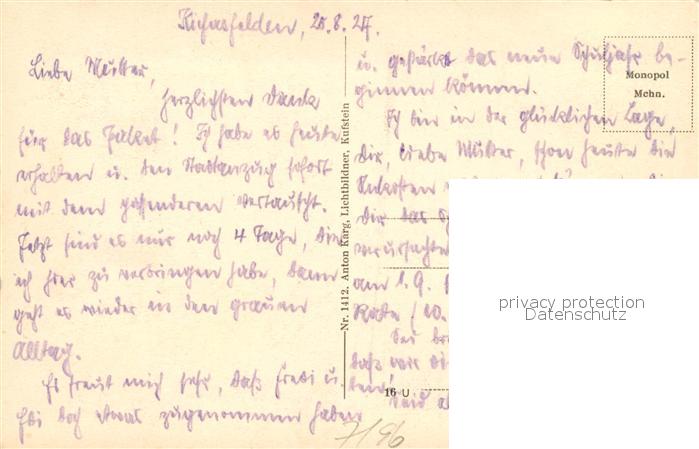 Kiefersfelden, 20.8.27.
Liebe Mutter,
herzlichsten Dank
für das Paket! Ich habe es heute
erhalten u. den Stadtanzug sofort
mit dem passenderen vertauscht.
Jetzt sind es nur noch 4 Tage, die
ich hier zu verbringen habe, dann
geht es wieder in den grauen
Alltag.
Es freut mich sehr, daß Fredi u.
doch etwas zugenommen haben
u. gestärkt das neue Schuljahr be-
ginnen können.
Ich bin in der glücklichen Lage,
Dir, liebe Mutter, schon heute die
Unkosten
Dir das
verursachte
am 1.9.
Rate (10.
daß wir
Seid
Nr. 1412. Anton Karg, Lichtbildner, Kufstein
Monopol
Mchn.
16 U
7196
privacy protection
Datenschutz